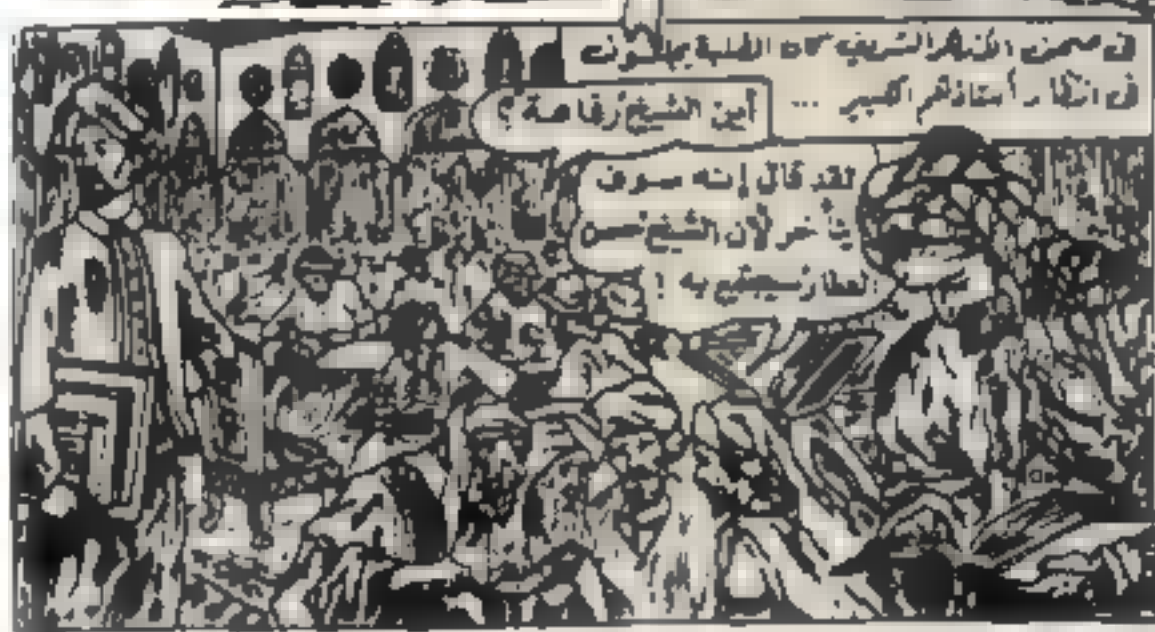 فى صحن الأزهر الشريف كان الطلبة يجلسون
فى انتظار أستاذهم الكبير ...
أين الشيخ رفاعة ؟
لقد قال إنه سوف
يتأخر لأن الشيخ حسن
العطار سيجتمع به !